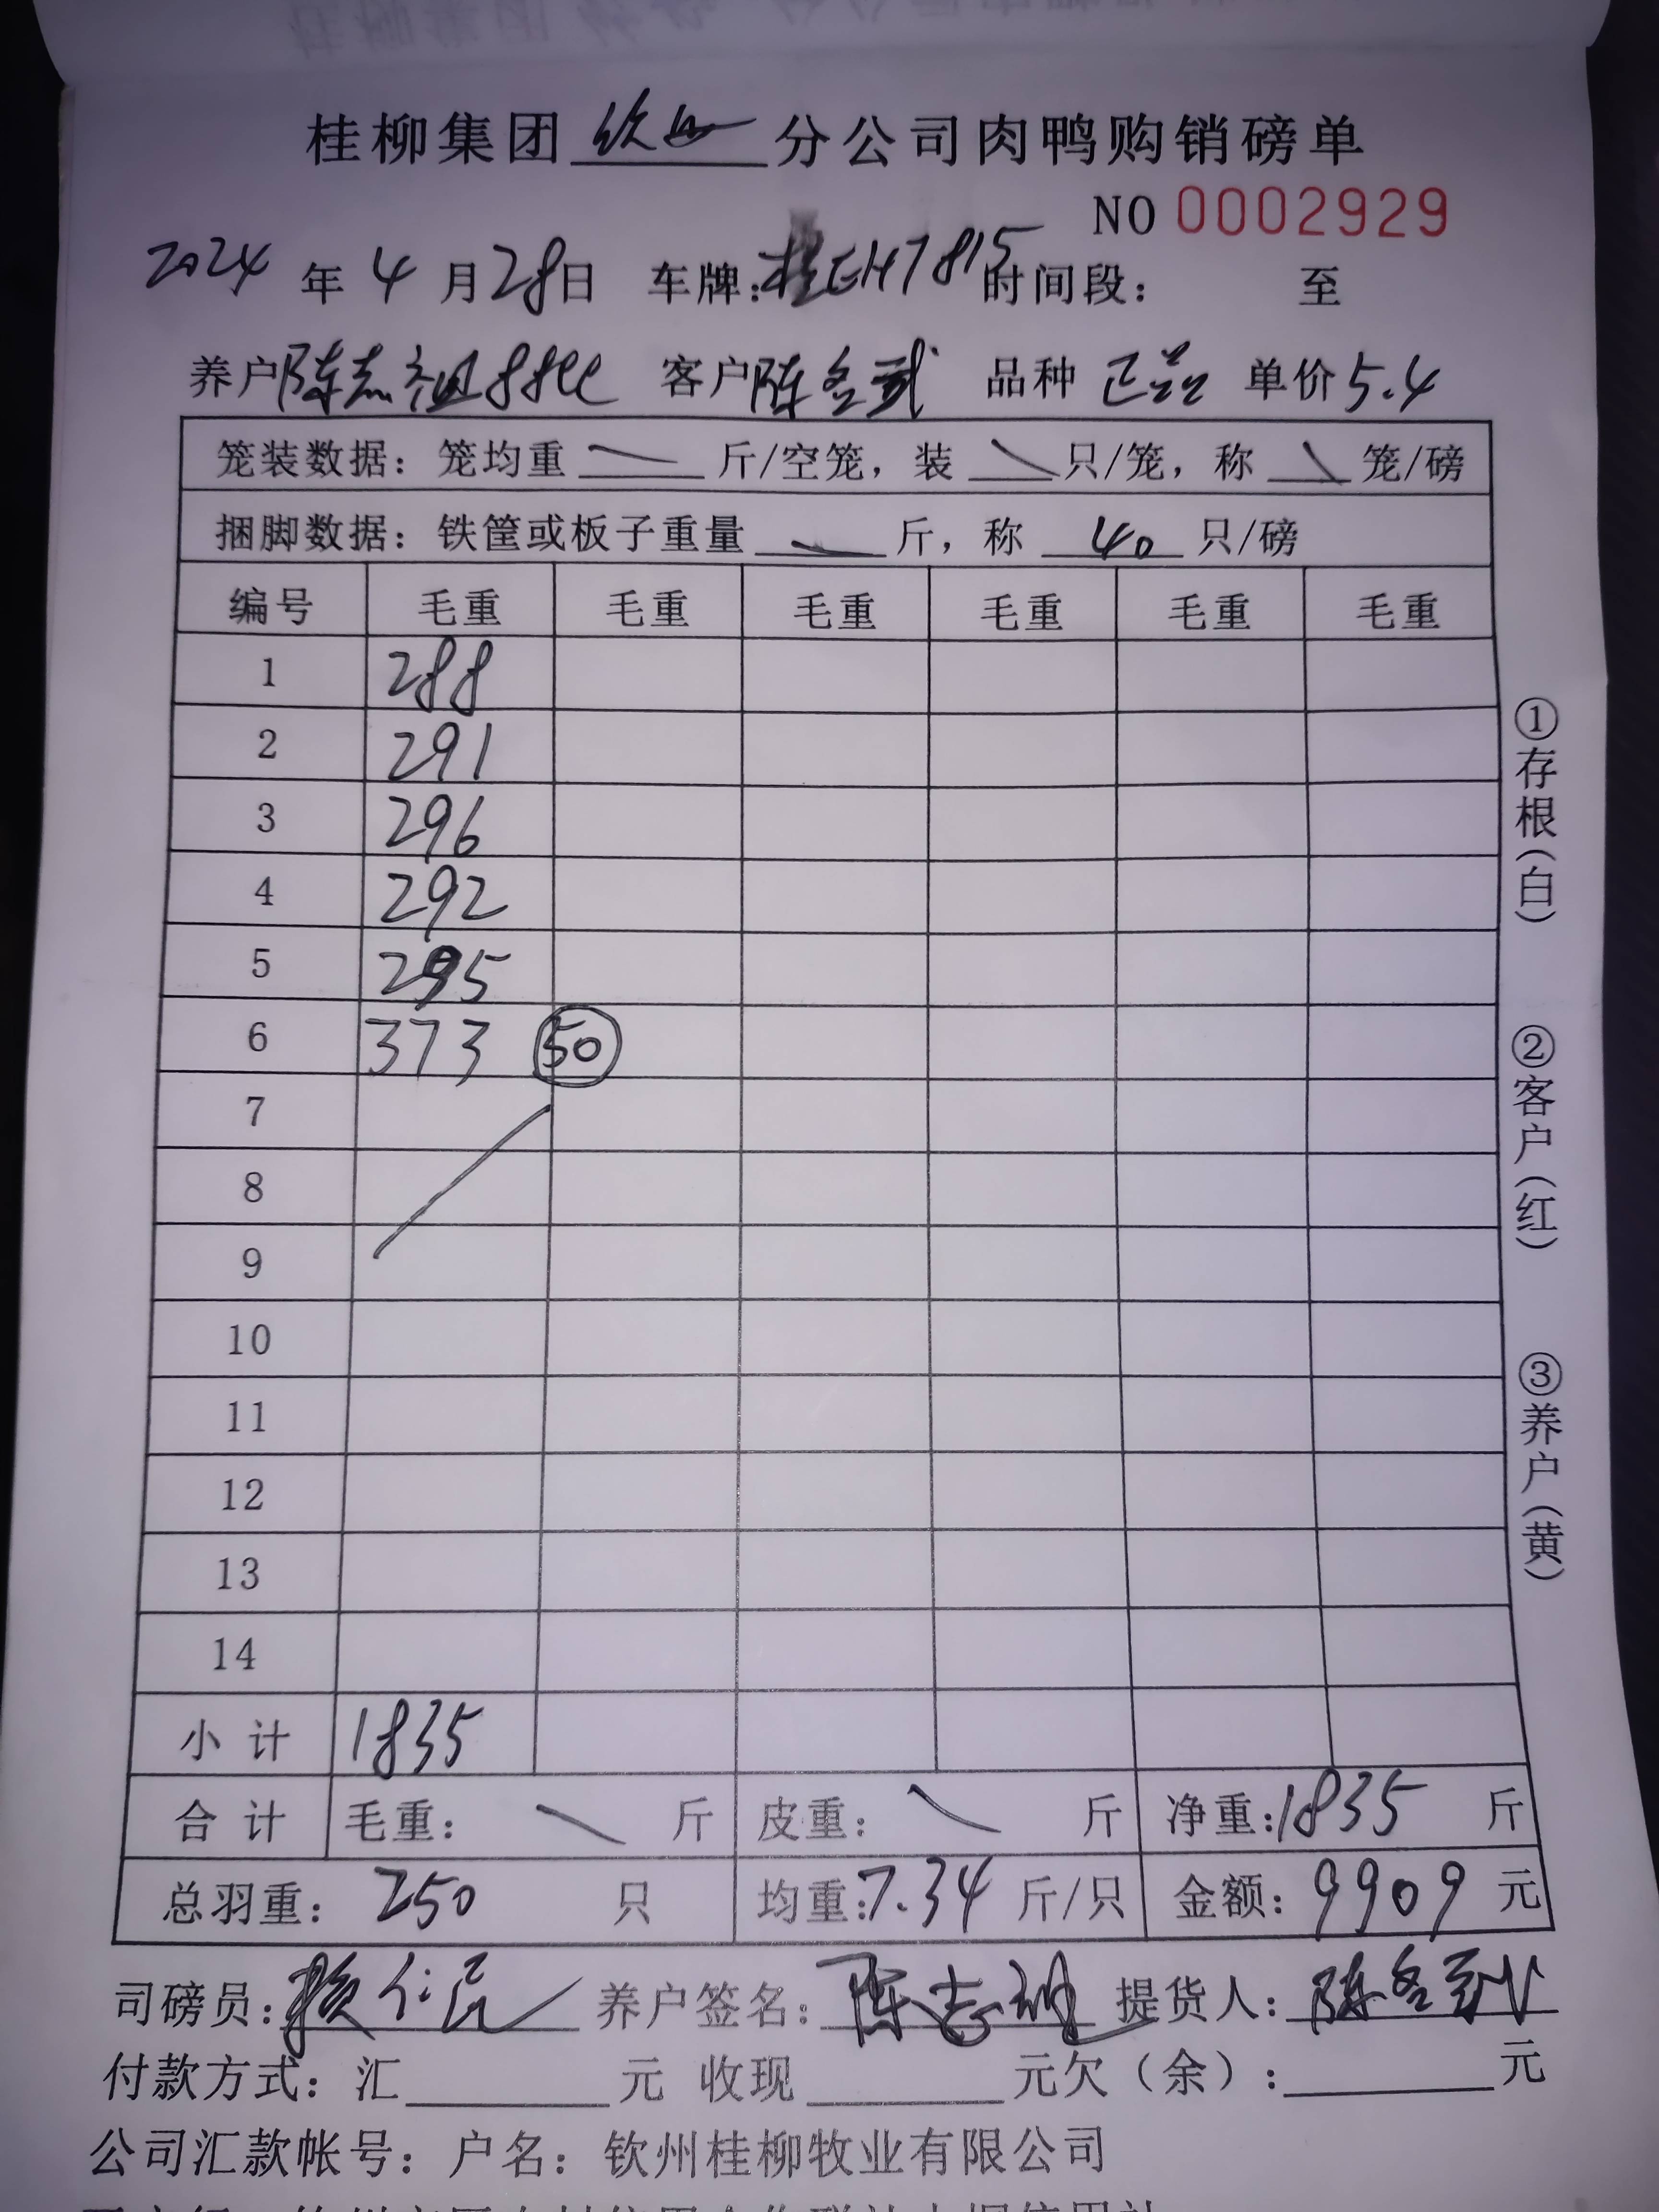 桂柳集团 钦州 分公司肉鸭购销磅单
NO 0002929
2024 年 4 月 28 日 车牌：桂EH7815 时间段： 至
养户 陈志祖88批 客户 陈名武 品种 正品 单价 5.4
笼装数据：笼均重 斤/空笼，装 只/笼，称 笼/磅
捆脚数据：铁筐或板子重量 斤，称 40 只/磅
编号 毛重 毛重 毛重 毛重 毛重 毛重
1 288
2 291
3 296
4 292
5 295
6 373 50
7
8
9
10
11
12
13
14
小计 1835
合计 毛重： 斤 皮重： 斤 净重：1835 斤
总羽重：250 只 均重：7.34 斤/只 金额：9909 元
司磅员：赖仁民 养户签名：陈志祖 提货人：陈名武
付款方式：汇 元 收现 元欠（余）： 元
公司汇款帐号：户名：钦州桂柳牧业有限公司
①存根（白）
②客户（红）
③养户（黄）